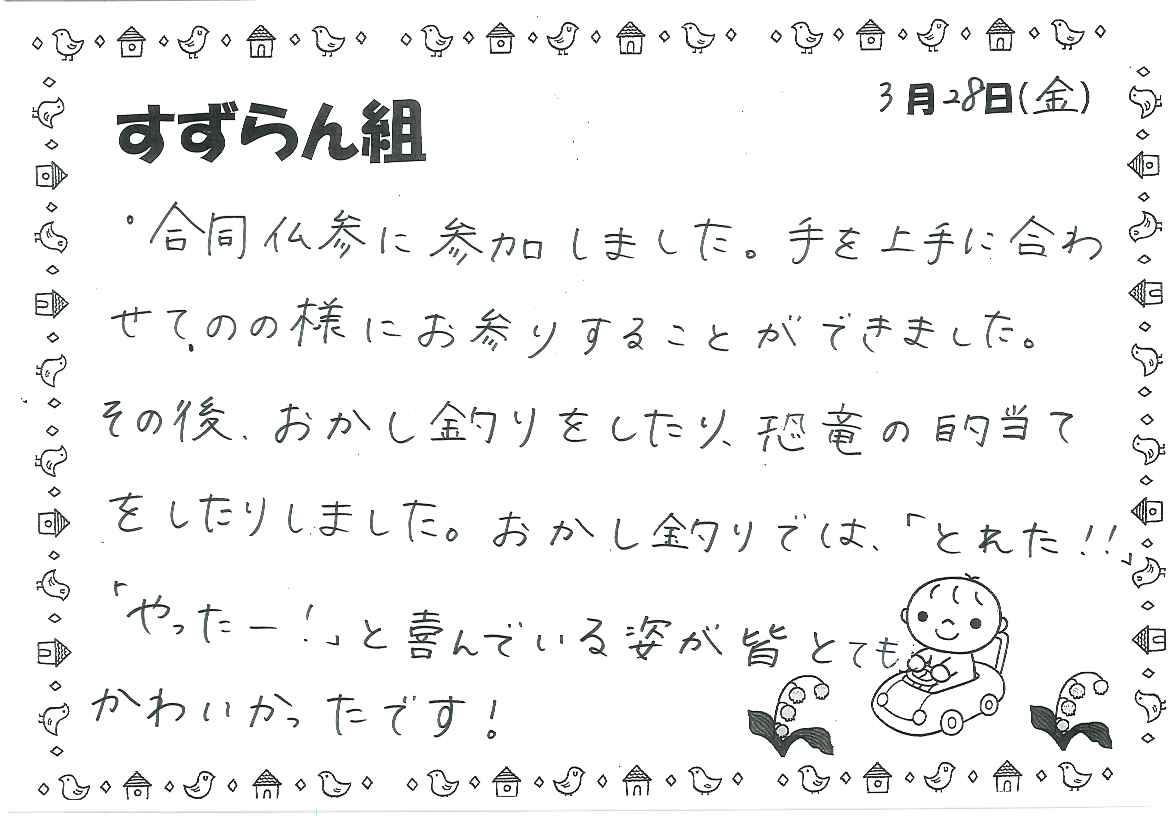 3月28日(金)
すずらん組
・合同仏参に参加しました。手を上手に合わ
せて、のの様にお参りすることができました。
その後、おかし釣りをしたり、恐竜の的当て
をしたりしました。おかし釣りでは、「とれた!!」
「やったー!」と喜んでいる姿が皆とても
かわいかったです!